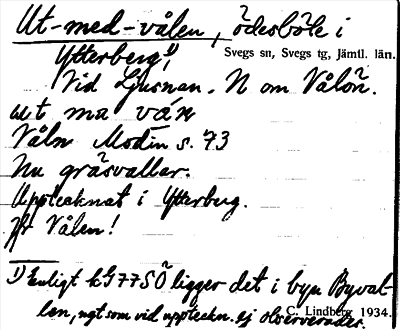 Ut-med-vålen, ödesböle i
Ytterberg,¹⁾
Svegs sn, Svegs tg, Jämtl. län.
Vid Ljusnan. N om Vålön.
ut ma
Våln Modin s. 73
Nu gräsvallar.
Upptecknat i Ytterberg.
Jfr Vålen!
1) Enligt kG77SÖ ligger det i byn Byval-
len, ngt som vid uppteckn. ej observerades.
C. Lindberg 1934.